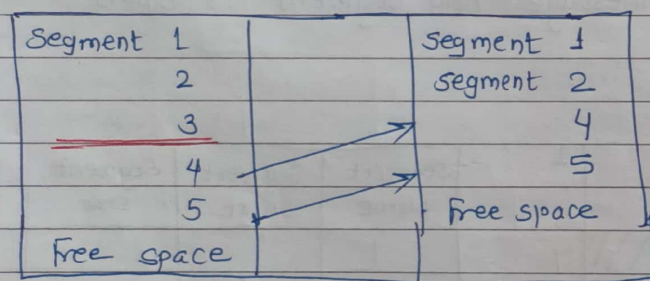 Segment 1
2
3
4
5
Free space
Segment 1
Segment 2
4
5
Free space